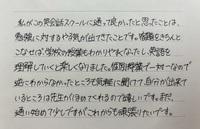 私がこの英会話スクールに通って良かったと思ったことは、
勉強に対するやる気が出てきたことです。宿題をきちんと
こなせば、学校の授業もわかりやすくなったし英語を
理解していくと楽しくなりました。個別授業で一対一なので
他にわからなかったところも気軽に聞けて、自分が出来て
いるところは先生がほめてくれるので嬉しいです。まだ、
通い始めて少しですがこれからも頑張りたいです。